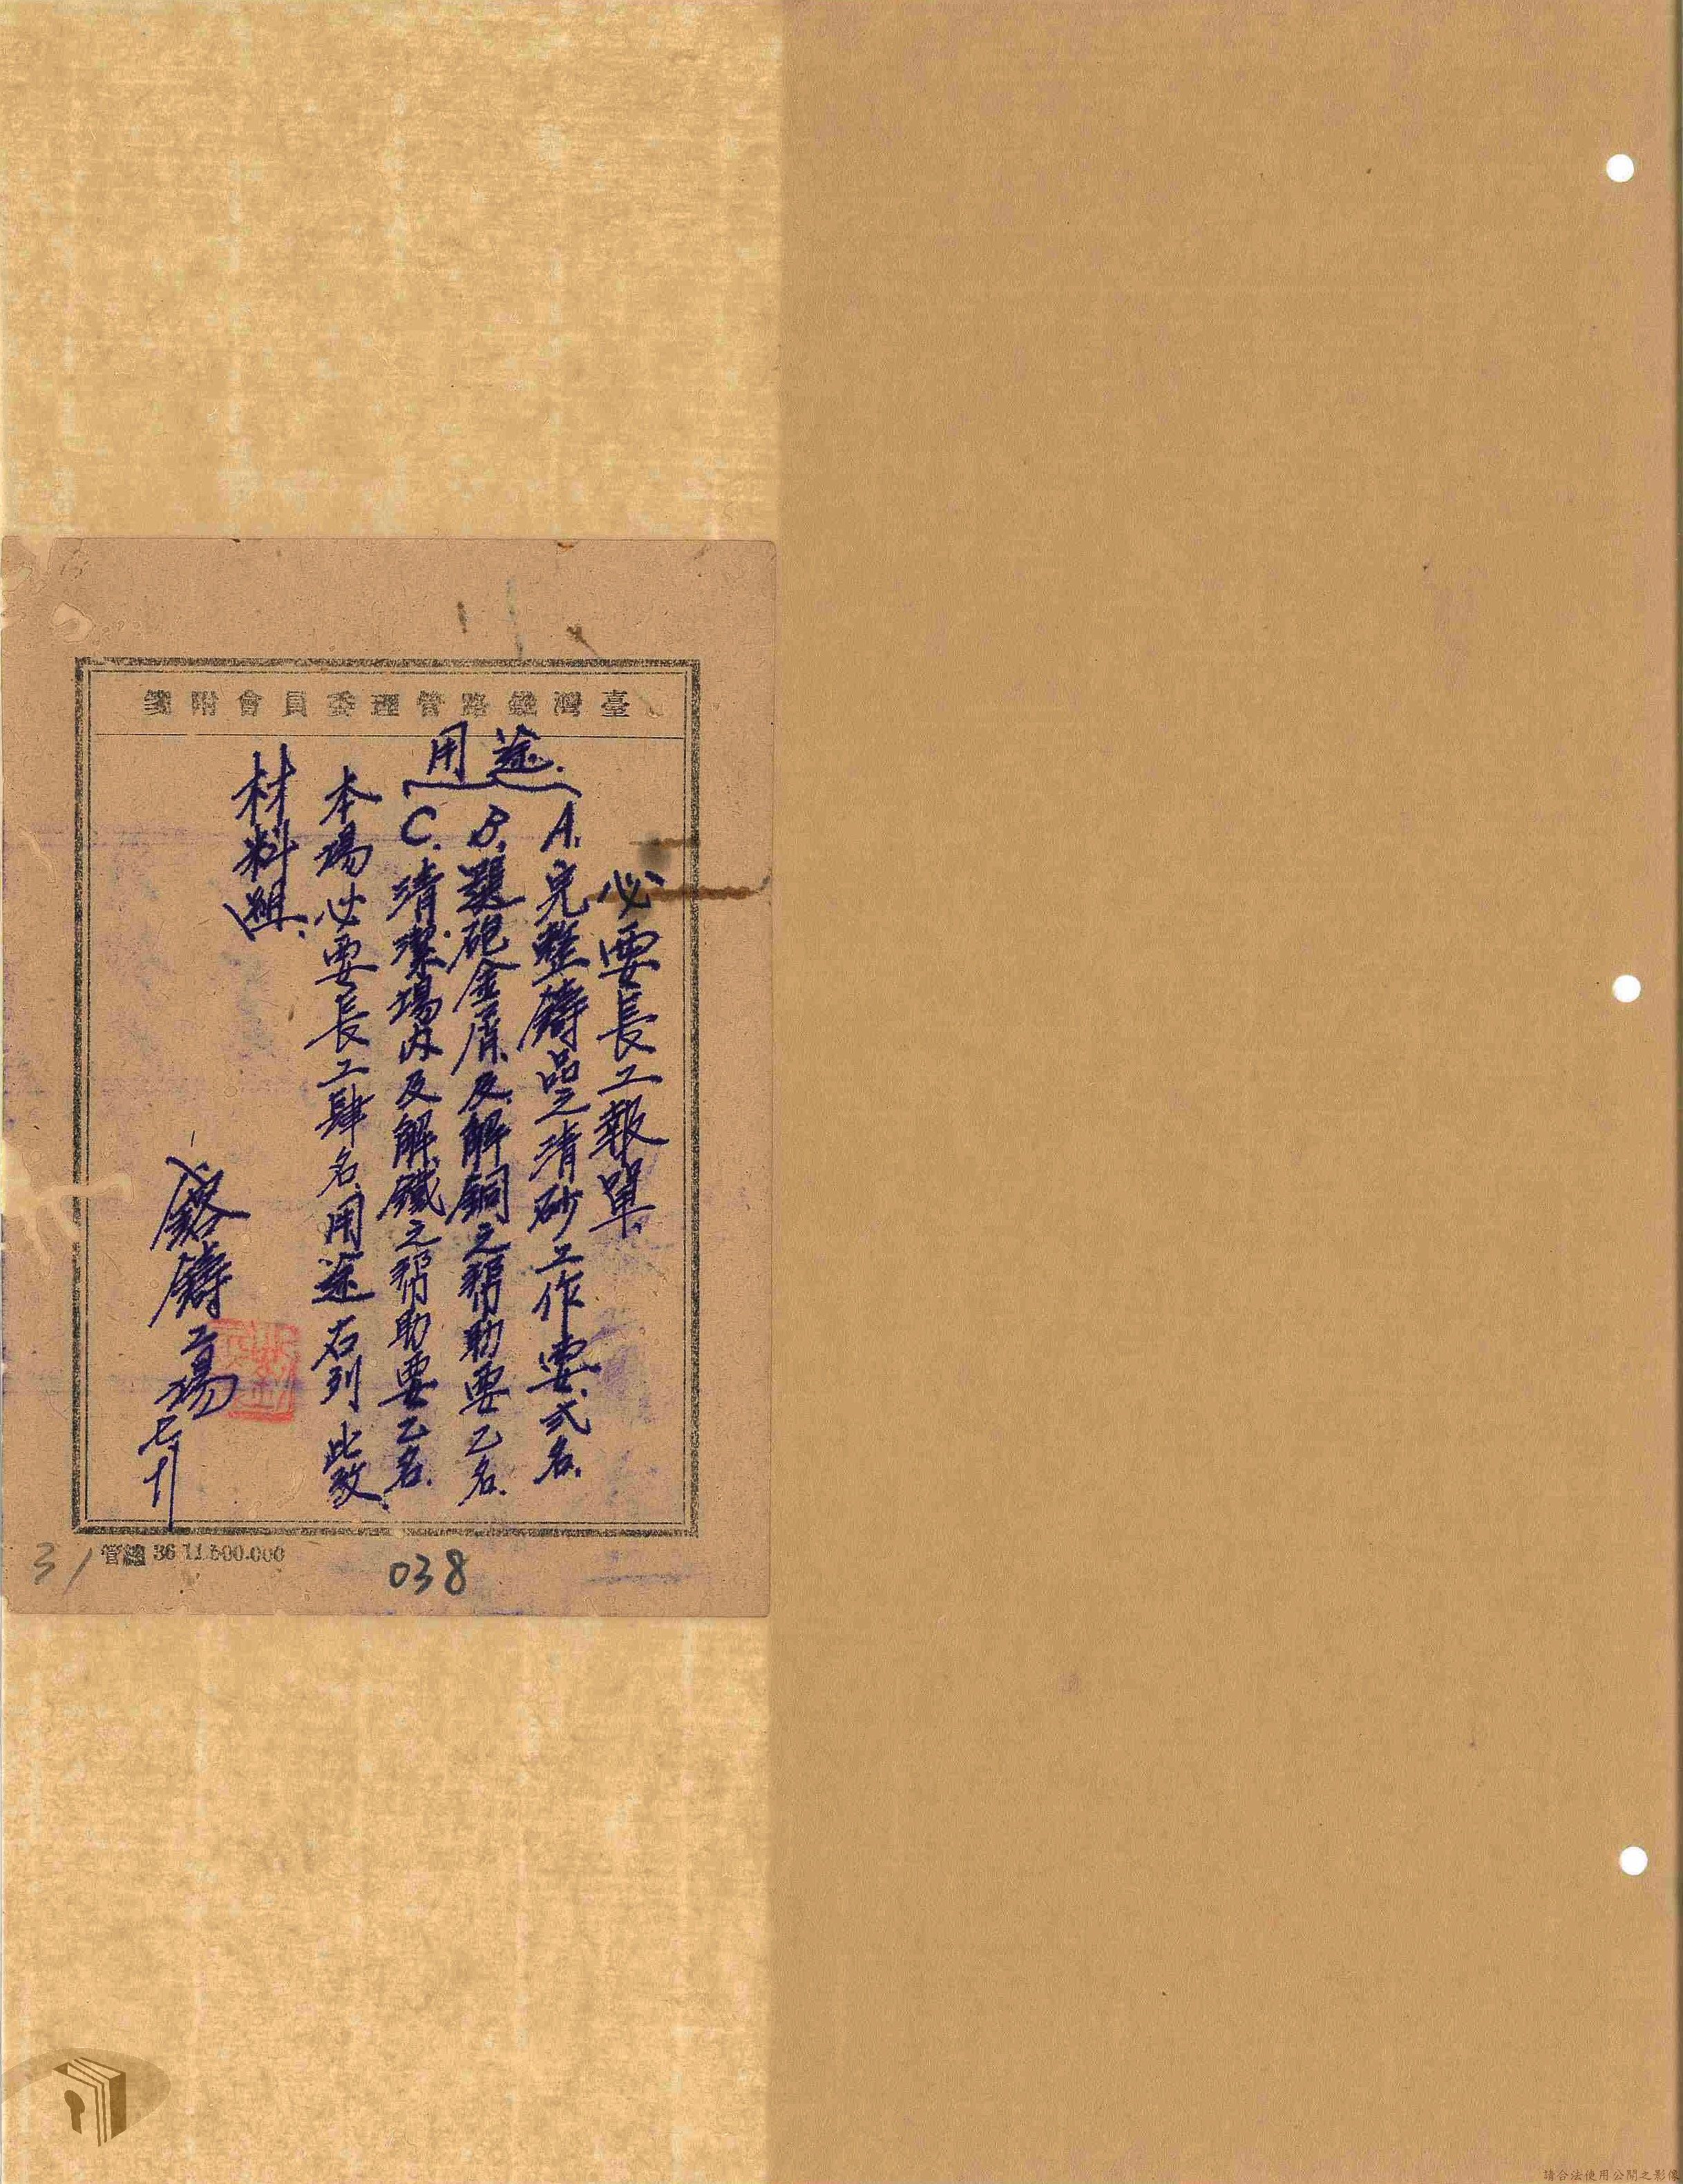 臺灣鐵路管理委員會附箋
必要長工報單
用途.
A. 完整鑄品之清砂工作要弍名.
B. 選砲金屑及解銅之帮助要乙名.
C. 清潔場內及解鐵之帮助要乙名.
本場必要長工肆名用途右列 此致
材料組.
鎔鑄工場
管鐵 36 11.500.000
31
038
請合法使用公開之影像